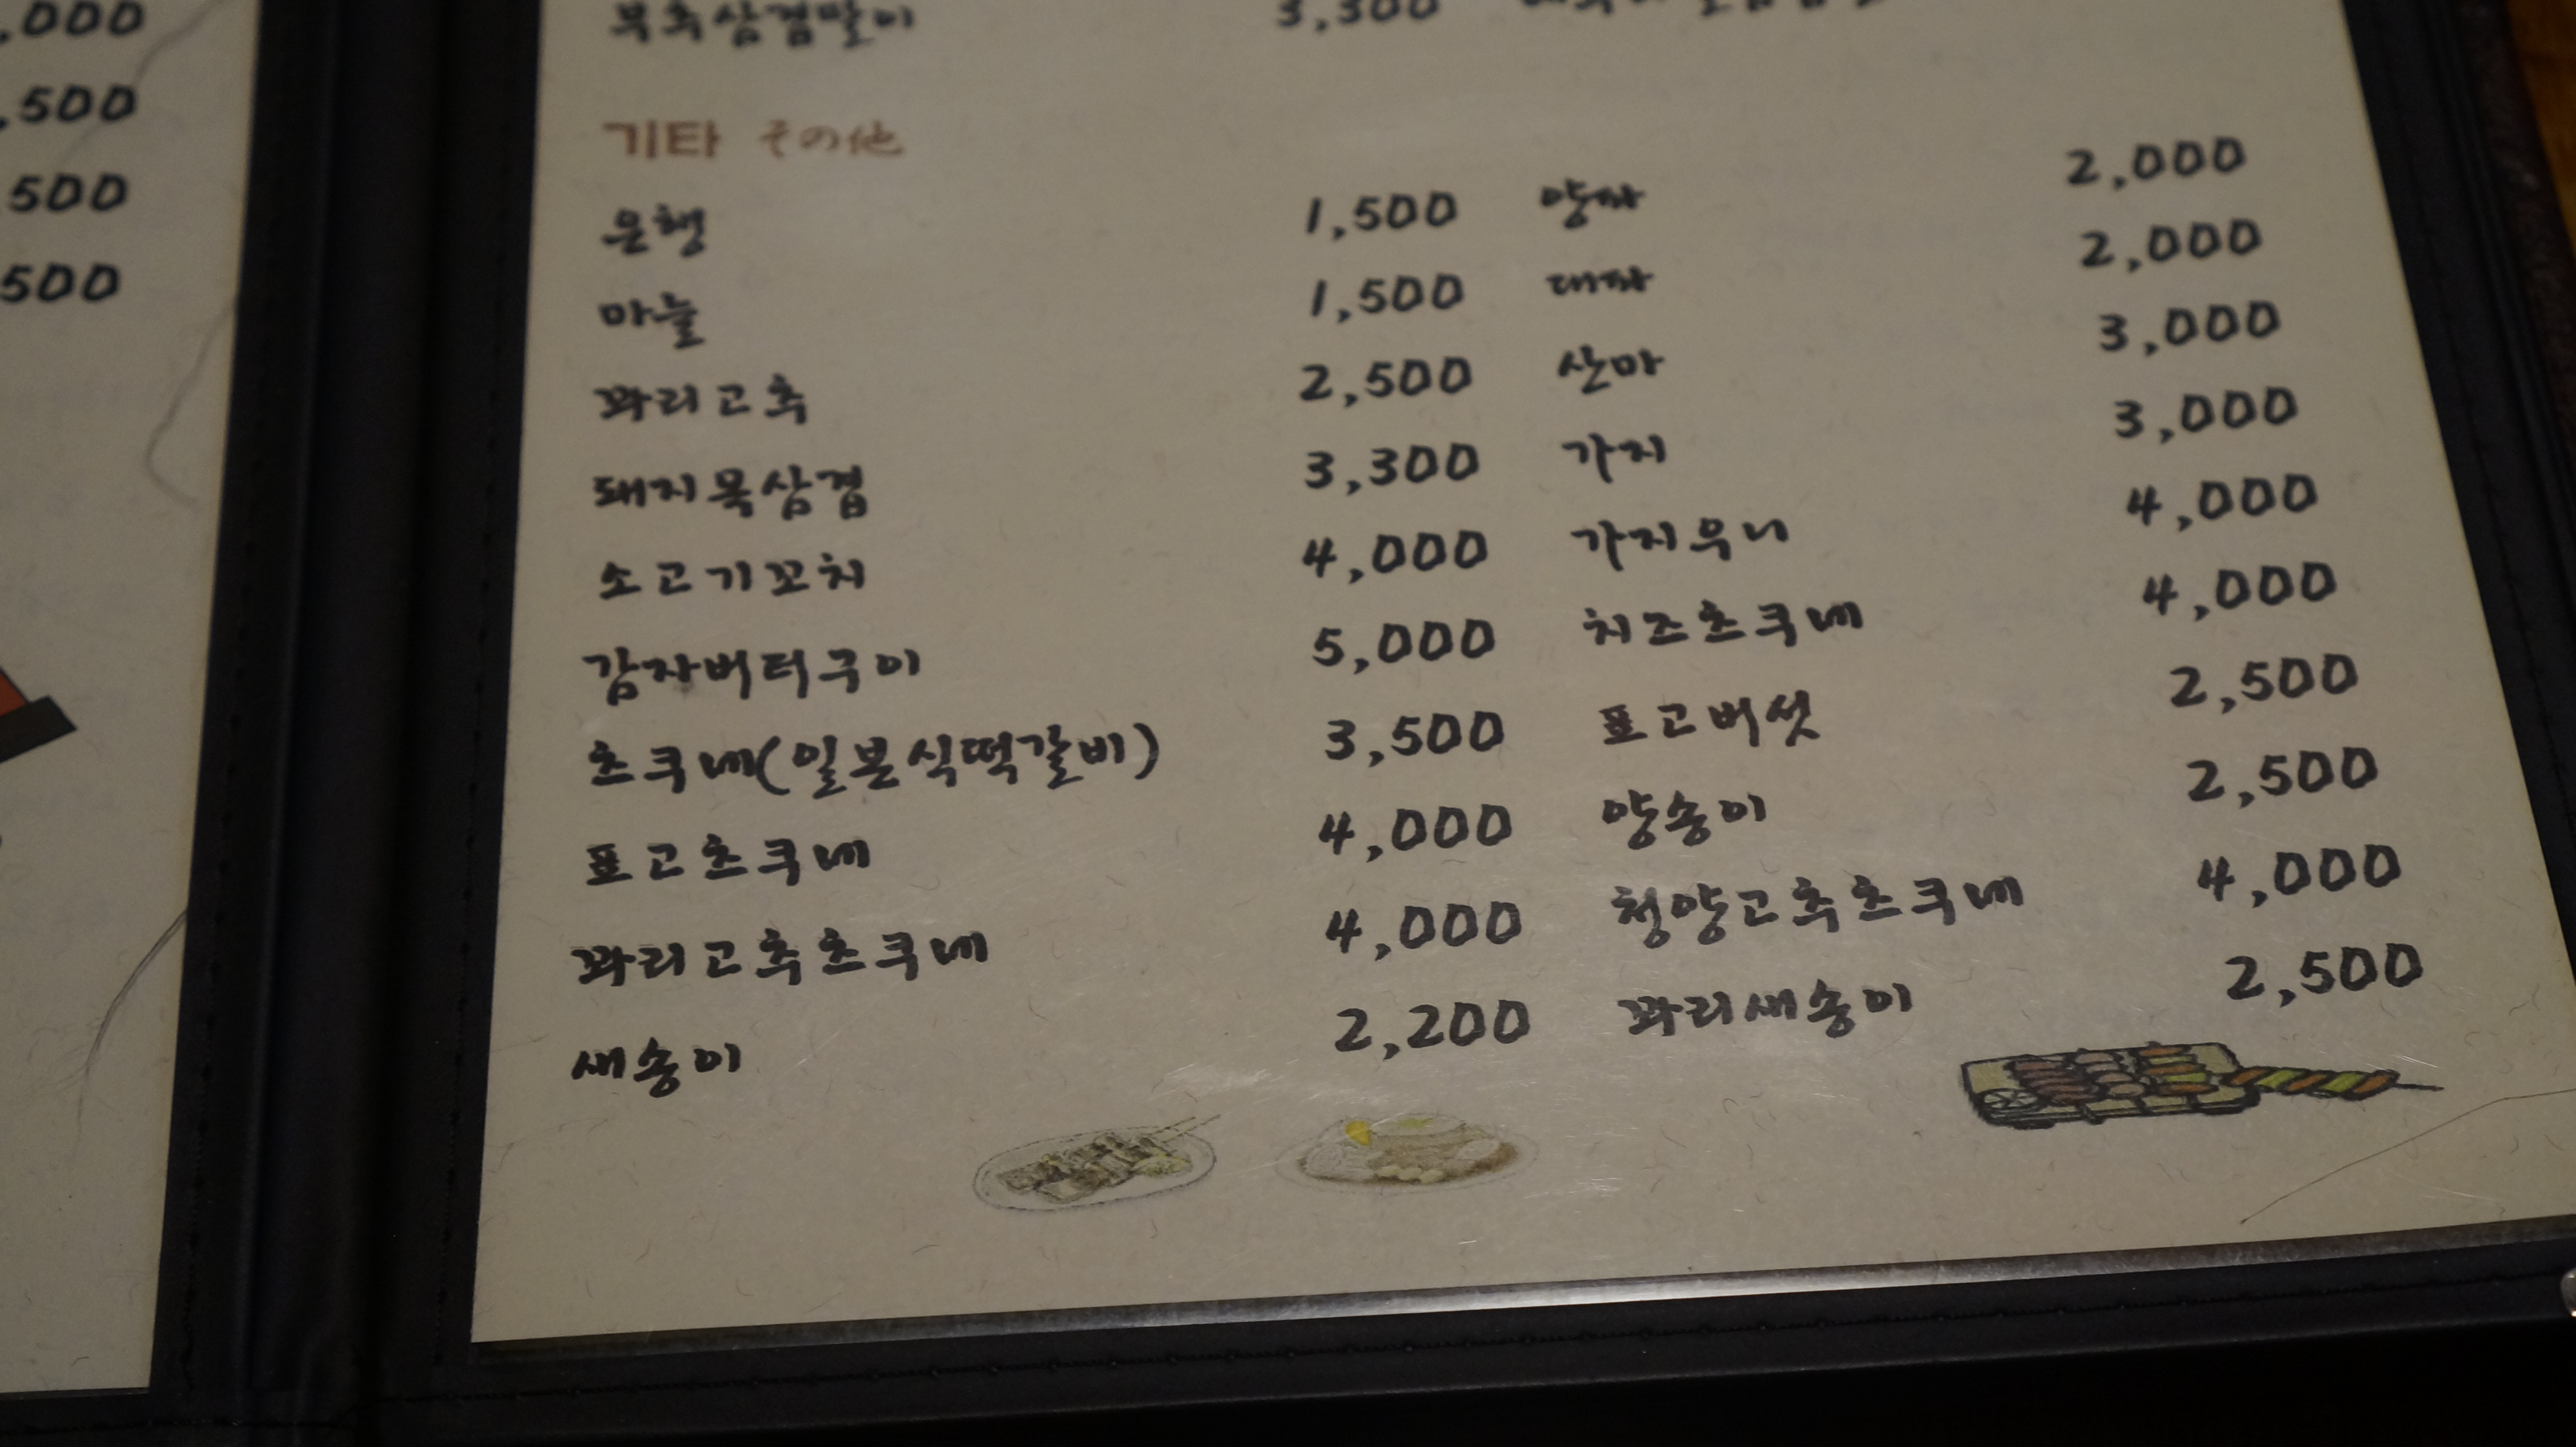 ,000
,500
500
500
부추삼겹말이 3,300
기타 その他
은행 1,500 양파 2,000
마늘 1,500 대파 2,000
꽈리고추 2,500 산마 3,000
돼지목삼겹 3,300 가지 3,000
소고기꼬치 4,000 가지우니 4,000
감자버터구이 5,000 치즈츠쿠네 4,000
츠쿠네(일본식떡갈비) 3,500 표고버섯 2,500
표고츠쿠네 4,000 양송이 2,500
꽈리고추츠쿠네 4,000 청양고추츠쿠네 4,000
새송이 2,200 꽈리새송이 2,500